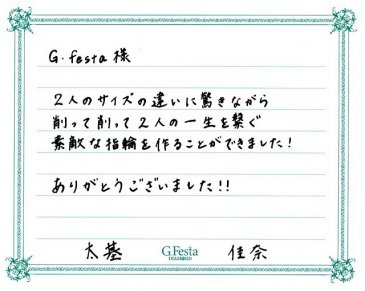 G.festa 様
2人のサイズの違いに驚きながら
削って削って2人の一生を繋ぐ
素敵な指輪を作ることができました!
ありがとうございました!!
太基 G.Festa DIAMOND 佳奈